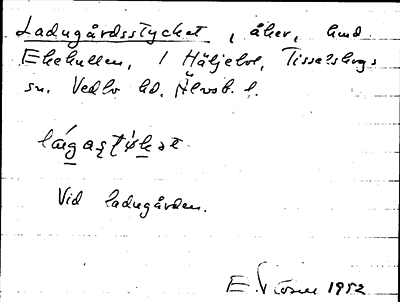 Ladugårdsstycket, åker, hmd
Ekekullen, 1 Häljebol, Tisselskogs
sn. Vedbo hd. Älvsb. l.
Vid ladugården.
1952